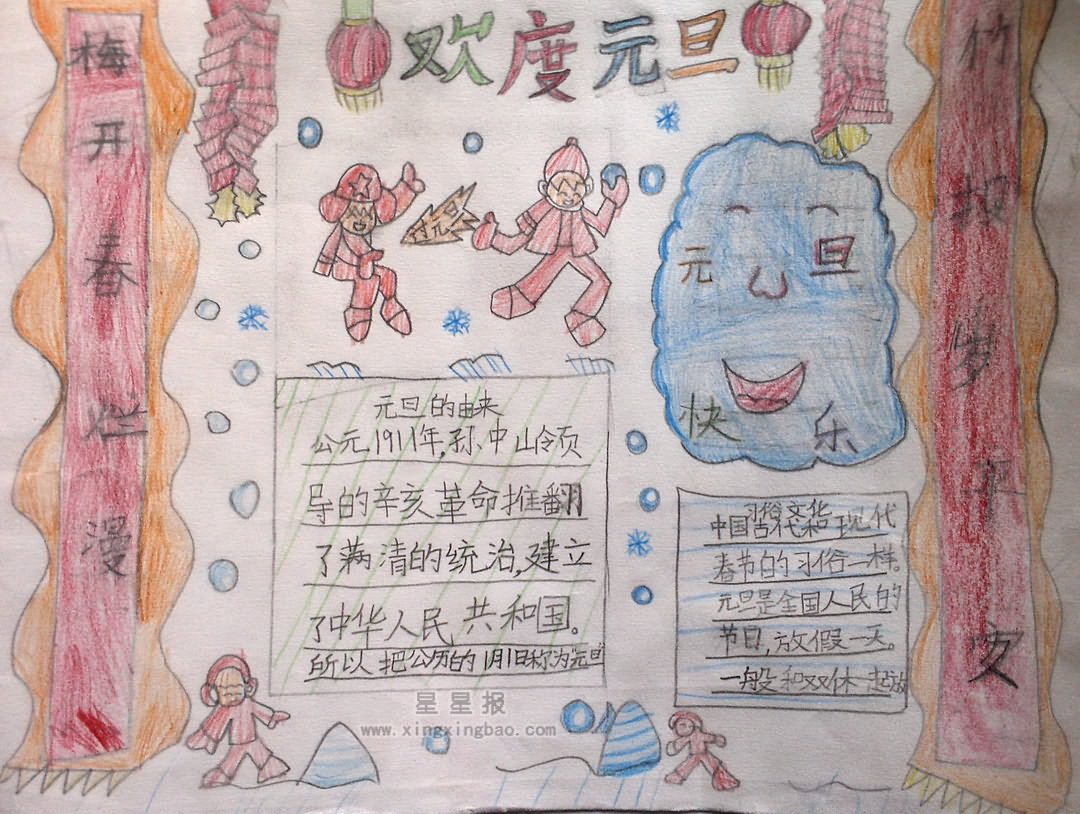 欢度元旦
梅开春烂漫
竹报岁平安
元旦
快乐
元旦的由来
公元1911年,孙中山领
导的辛亥革命推翻
了满清的统治,建立
了中华人民共和国。
所以把公历的1月1日称为“元旦”
习俗文化
中国古代和现代
春节的习俗一样。
元旦是全国人民的
节日,放假一天。
一般和双休一起放
星星报
www.xingxingbao.com